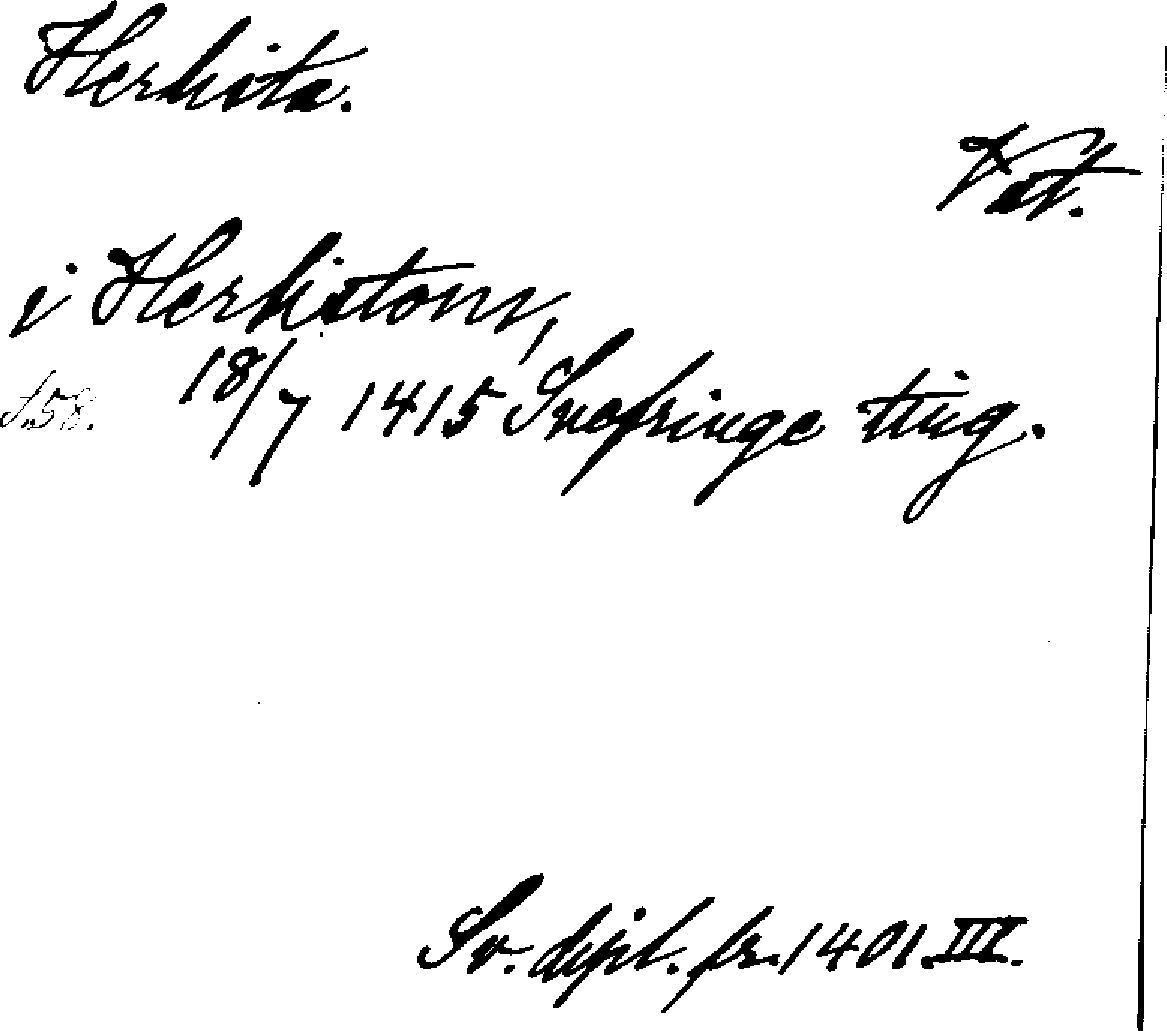 Herkista.
Vst.
i Herkistom,
18/7 1415 Snefringe ting.
s. 58.
Sv. dipl. fr. 1401. III.